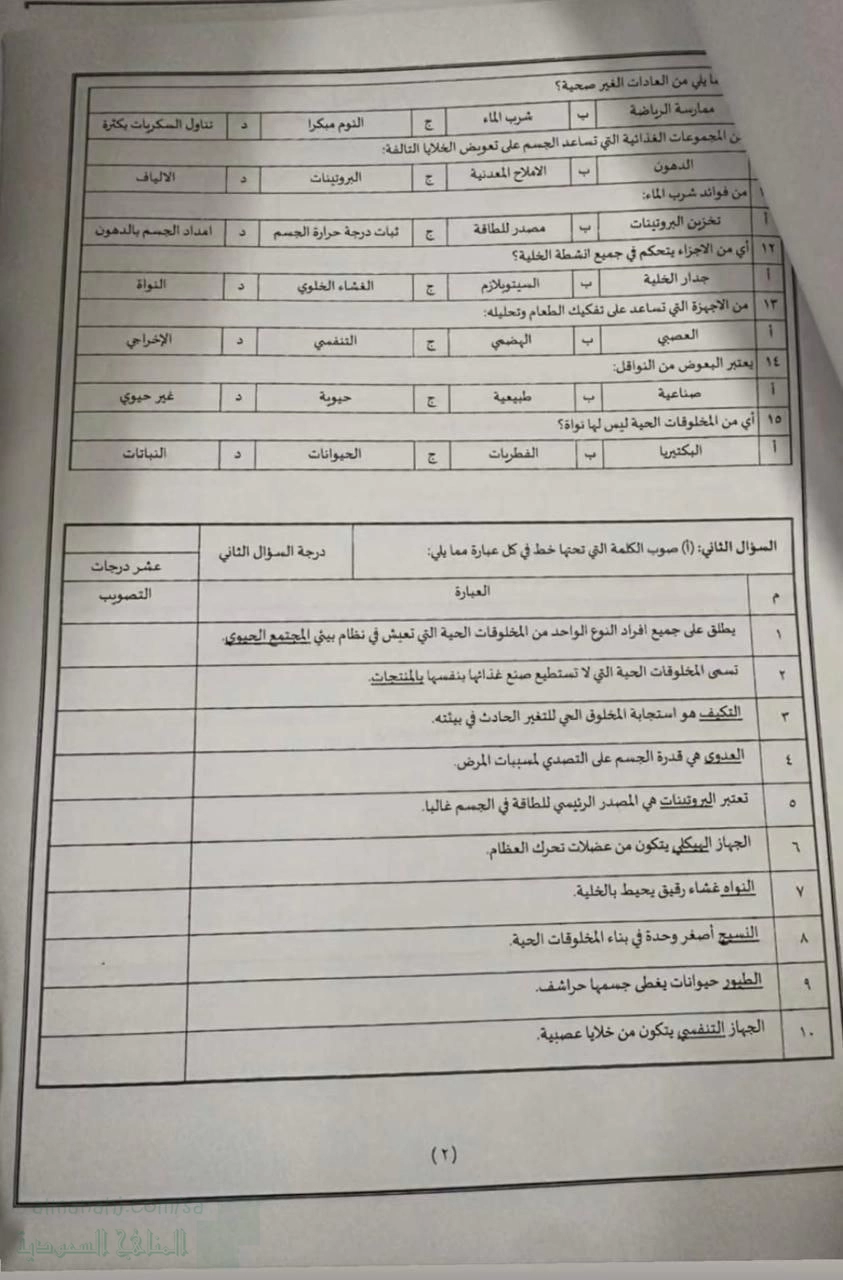 ما يلي من العادات الغير صحية؟
ممارسة الرياضة ب شرب الماء ج النوم مبكرا د تناول السكريات بكثرة
من المجموعات الغذائية التي تساعد الجسم على تعويض الخلايا التالفة:
الدهون ب الاملاح المعدنية ج البروتينات د الالياف
١ من فوائد شرب الماء:
أ تخزين البروتينات ب مصدر للطاقة ج ثبات درجة حرارة الجسم د امداد الجسم بالدهون
١٢ أي من الاجزاء يتحكم في جميع انشطة الخلية؟
أ جدار الخلية ب السيتوبلازم ج الغشاء الخلوي د النواة
١٣ من الاجهزة التي تساعد على تفكيك الطعام وتحليله:
أ العصبي ب الهضمي ج التنفسي د الإخراجي
١٤ يعتبر البعوض من النواقل:
أ صناعية ب طبيعية ج حيوية د غير حيوي
١٥ أي من المخلوقات الحية ليس لها نواة؟
أ البكتيريا ب الفطريات ج الحيوانات د النباتات
السؤال الثاني: (أ) صوب الكلمة التي تحتها خط في كل عبارة مما يلي: درجة السؤال الثاني
عشر درجات
م العبارة التصويب
١ يطلق على جميع افراد النوع الواحد من المخلوقات الحية التي تعيش في نظام بيئي المجتمع الحيوي.
٢ تسمى المخلوقات الحية التي لا تستطيع صنع غذائها بنفسها بالمنتجات.
٣ التكيف هو استجابة المخلوق الحي للتغير الحادث في بيئته.
٤ العدوى هي قدرة الجسم على التصدي لمسببات المرض.
٥ تعتبر البروتينات هي المصدر الرئيسي للطاقة في الجسم غالبا.
٦ الجهاز الهيكلي يتكون من عضلات تحرك العظام.
٧ النواه غشاء رقيق يحيط بالخلية.
٨ النسيج أصغر وحدة في بناء المخلوقات الحية.
٩ الطيور حيوانات يغطى جسمها حراشف.
١٠ الجهاز التنفسي يتكون من خلايا عصبية.
(٢)
almanahj.com/sa
المناهج السعودية